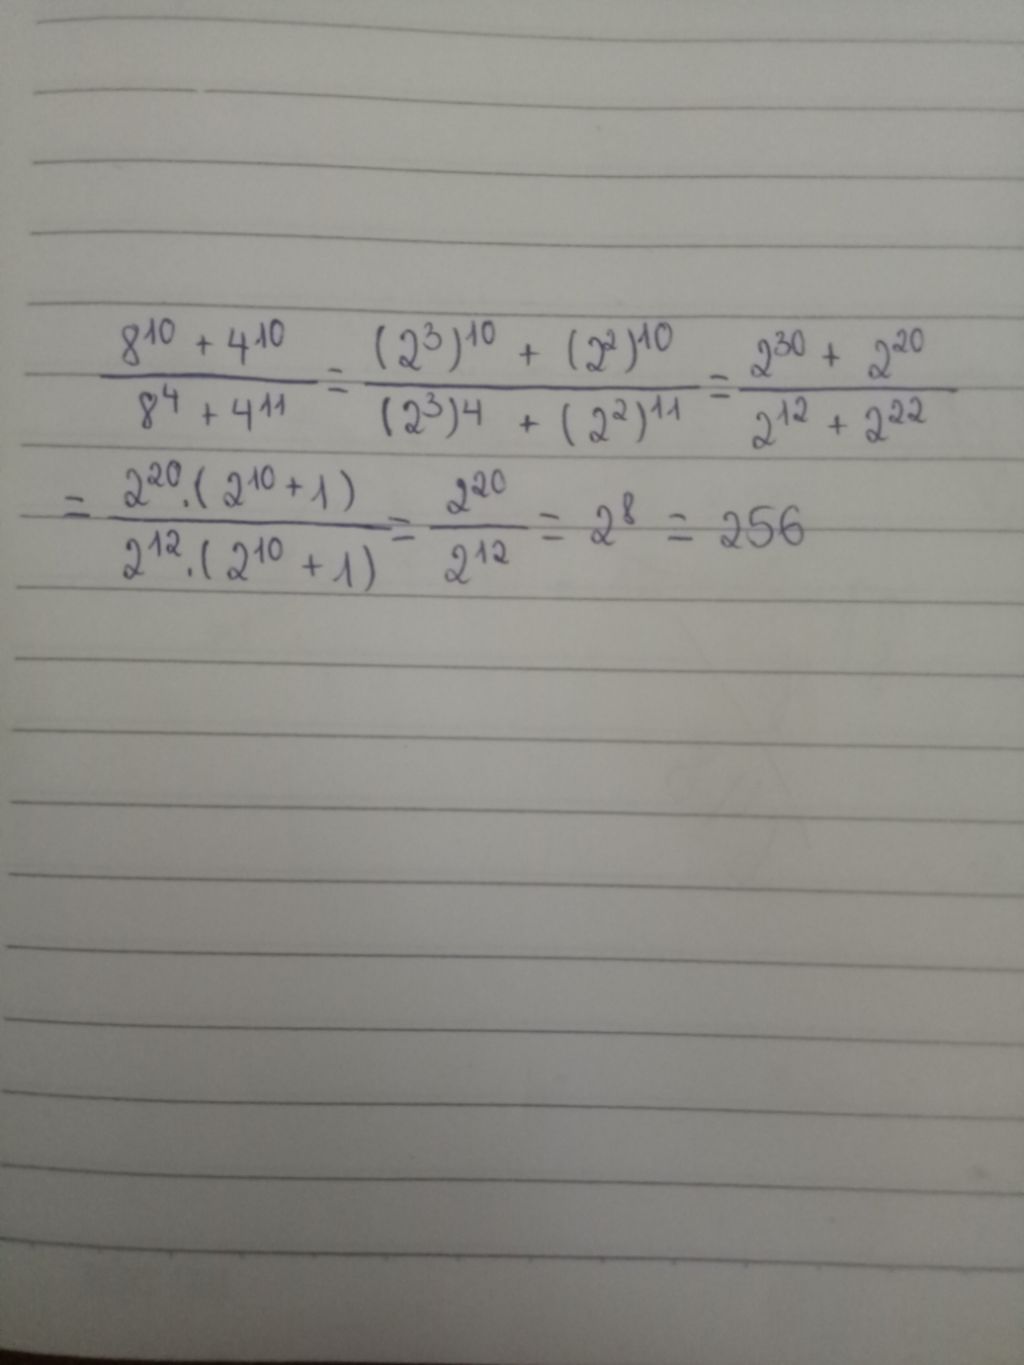 (8¹⁰ + 4¹⁰)/(8⁴ + 4¹¹) = ((2³)¹⁰ + (2²)¹⁰)/((2³)4 + (2²)¹¹) = (2³⁰ + 2²⁰)/(2¹² + 2²²)
= (2²⁰.(2¹⁰+1))/(2¹².(2¹⁰+1)) = 2²⁰/2¹² = 2⁸ = 256